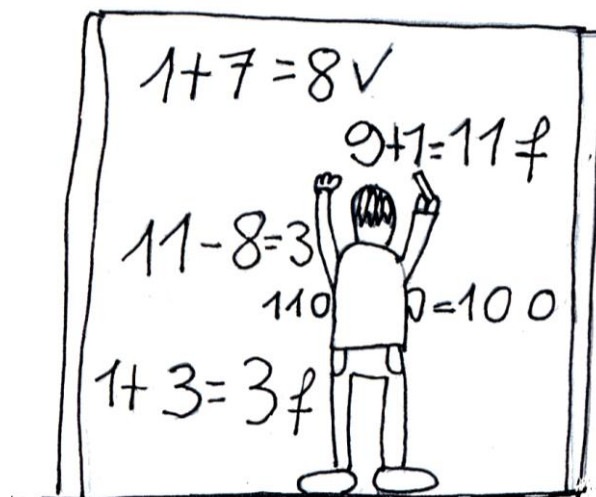 1+7=8✓
9+1=11 f
11-8=3
110 0=100
1+3=3 f